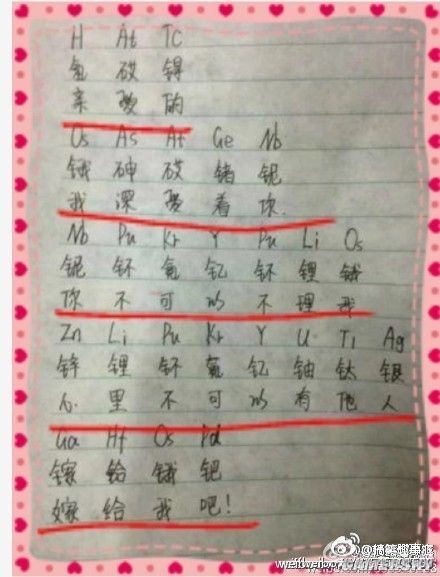 H At Tc
氢 砹 锝
亲 爱 的
Os As At Ge Nb
锇 砷 砹 锗 铌
我 深 爱 着 你
Nb Pu Kr Y Pu Li Os
铌 钚 氪 钇 钚 锂 锇
你 不 可 以 不 理 我
Zn Li Pu Kr Y U Ti Ag
锌 锂 钚 氪 钇 铀 钛 银
心 里 不 可 以 有 他 人
Ga Hf Os Pd
镓 铪 锇 钯
嫁 给 我 吧！